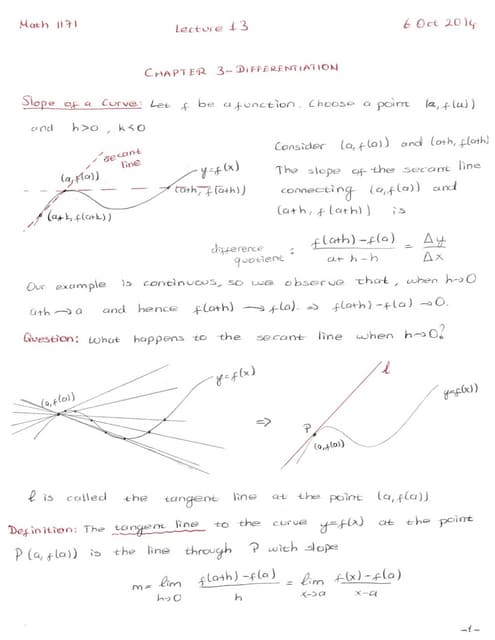 Math 1171
Lecture 13
6 Oct 2014
CHAPTER 3 - DIFFERENTIATION
Slope of a Curve: Let f be a function. Choose a point (a, f(a))
and h>0, k<0
secant
line
(a, f(a))
y=f(x)
(a+h, f(a+h))
(a+k, f(a+k))
Consider (a, f(a)) and (a+h, f(a+h))
The slope of the secant line
connecting (a, f(a)) and
(a+h, f(a+h)) is
difference
quotient : f(a+h)-f(a) / a+h-h = Δy / Δx
Our example is continuous, so we observe that, when h→0
a+h→a and hence f(a+h) → f(a). ⇒ f(a+h)-f(a) → 0.
Question: What happens to the secant line when h→0?
(a, f(a))
y=f(x)
⇒
l
P
(a, f(a))
y=f(x)
l is called the tangent line at the point (a, f(a))
Definition: The tangent line to the curve y=f(x) at the point
P(a, f(a)) is the line through P with slope
m = lim h→0 f(a+h)-f(a) / h = lim x→a f(x)-f(a) / x-a
-1-